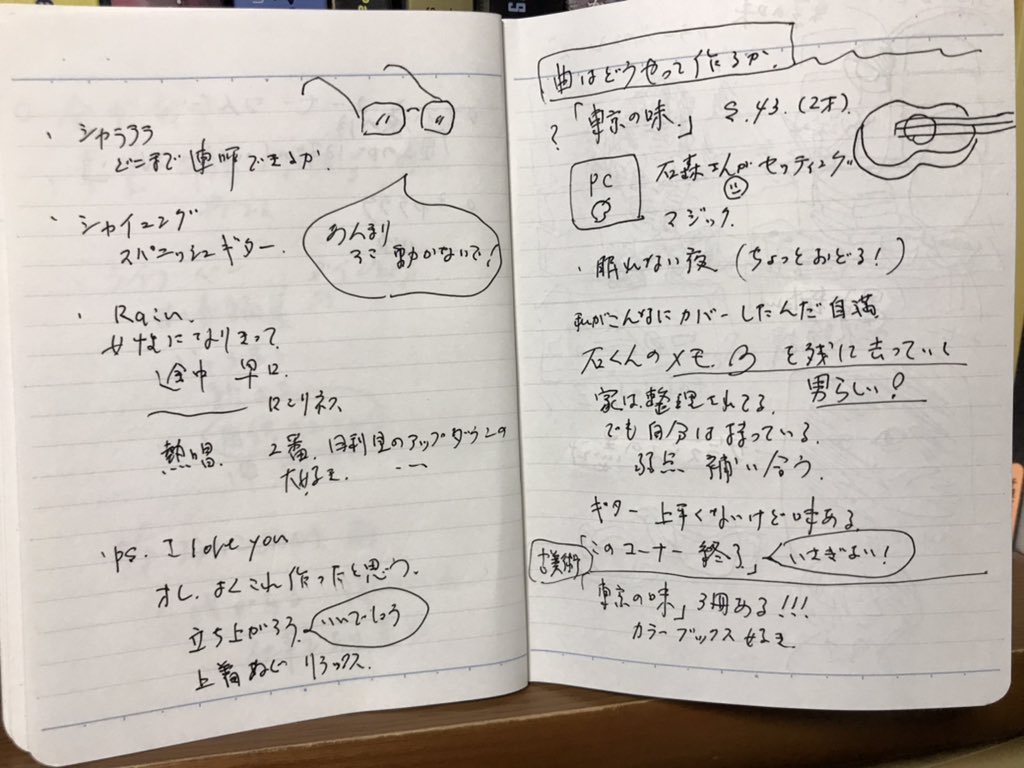 ・シャララ
どこまで連呼できるか
・シャイニング
スパニッシュギター.
あんまり
動かないで!
・Rain.
女性になりきって
途中 早口.
ロンリネス
熱唱. 2番. 目利里のアップダウンの
大好き.
・ps. I love you
オレ. よくこれ作ったと思う.
立ち上がろう. いいでしょう
上着ぬぐ リラックス.
曲はどうやって作るか.
?「東京の味.」 S.43.(2才).
PC 石森さんがセッティング
マジック.
・眠れない夜 (ちょっとおどる!)
私がこんなにカバーしたんだ自慢
石くんのメモ. を残に去っていく
男らしい?
家は整理されてる.
でも自分は持っている.
弱点 補い合う.
ギター 上手くないけど味ある.
古美術「このコーナー 終了」 いさぎよい!
「東京の味」3冊ある!!!
カラーブックス好き